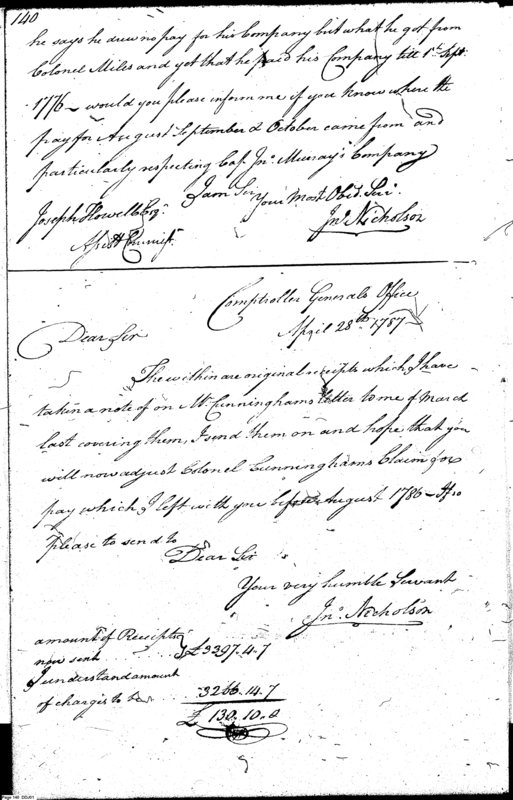 140
he says he drew no pay for his Company but what he got from
Colonel Miles and yet that he paid his Company till 1st Sept.
1776 - would you please inform me if you know where the
pay for August September & October came from and
particularly respecting Cap. Jno. Murray's Company
I am Sir
Your Most Obed. Ser.
Joseph Howell Esqr.
Jno. Nicholson
Assist Commissr.
Comptroller Generals Office
April 28th 1787 -
Dear Sir
The within are original receipts which I have
taken a note of on Mr. Cunninghams letter to me of March
last covering them, I send them on and hope that you
will now adjust Colonel Cunninghams Claim for
pay which I left with you before August 1786 -
please to send to
Dear Sir
Your very humble Servant
Jno. Nicholson
amount of Receipts
now sent } £3397.4.7
I understand amount
of charges to be 3266.14.7
£ 130.10.0
Page 140